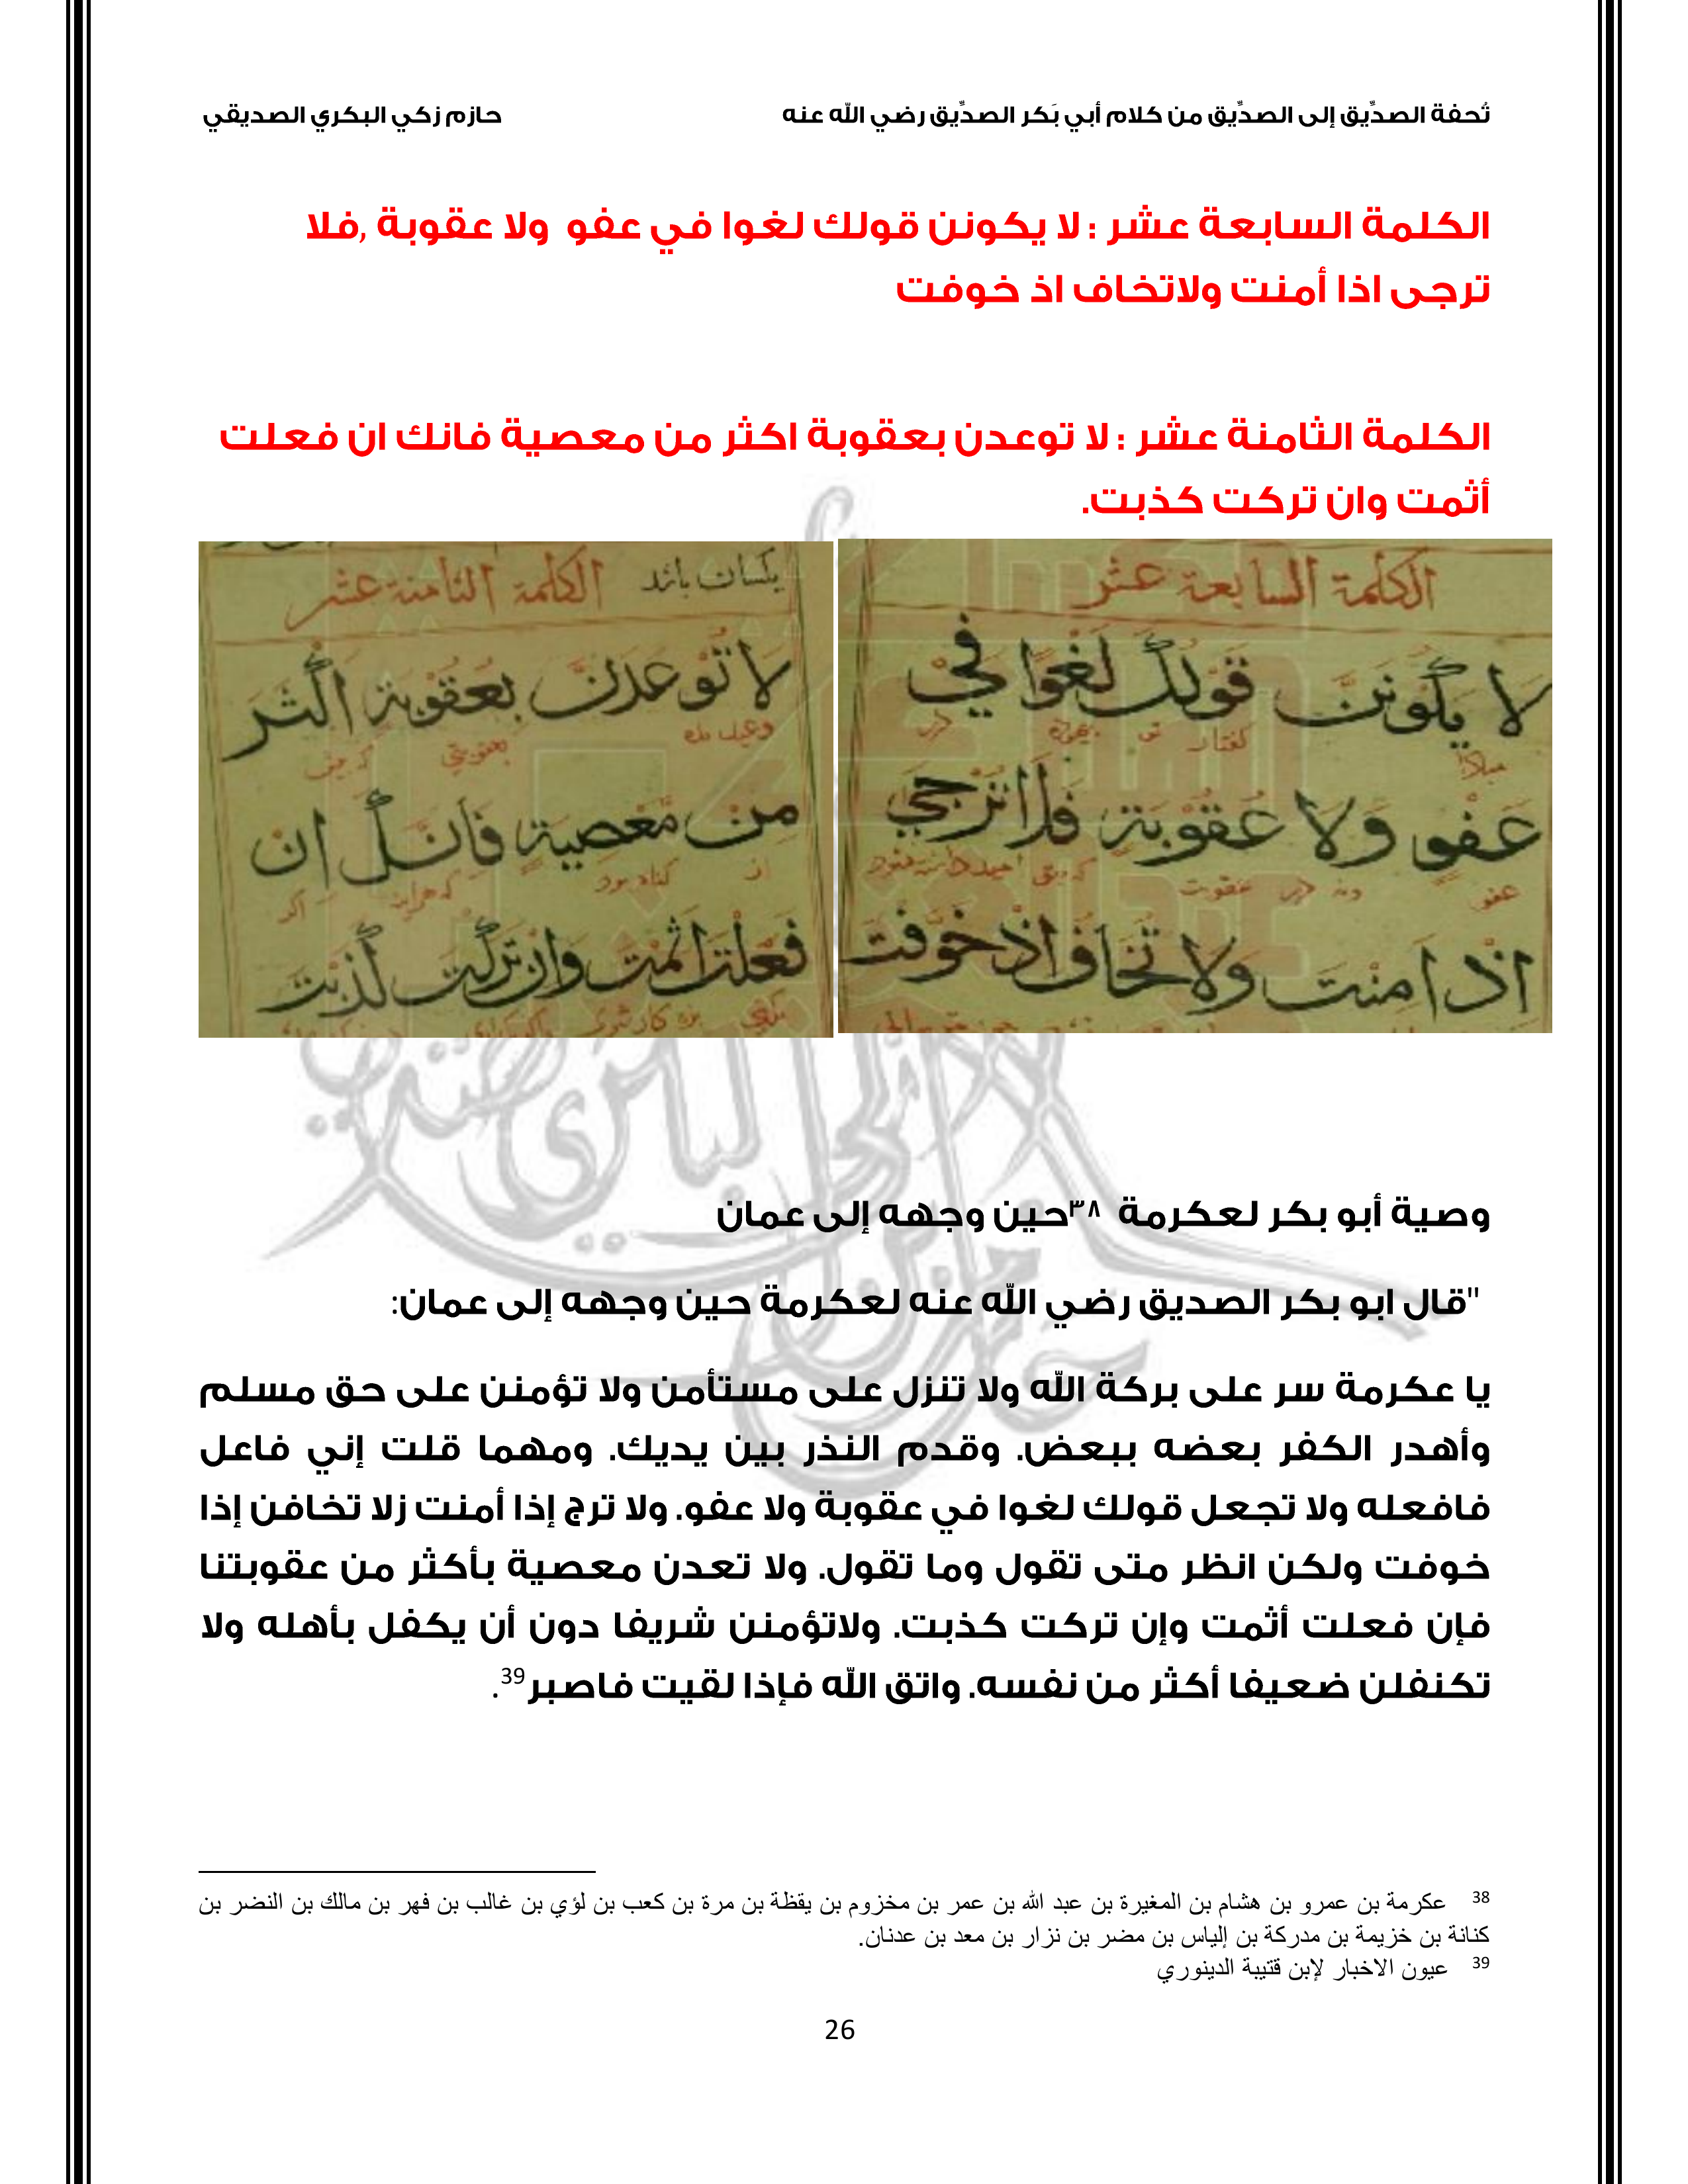 تُحفة الصدِّيق إلى الصدِّيق من كلام أبي بَكر الصدِّيق رضي الله عنه حازم زكي البكري الصديقي
الكلمة السابعة عشر : لا يكونن قولك لغوا في عفو ولا عقوبة ,فلا
ترجى اذا أمنت ولاتخاف اذ خوفت
الكلمة الثامنة عشر : لا توعدن بعقوبة اكثر من معصية فانك ان فعلت
أثمت وان تركت كذبت.
الكلمة السابعة عشر
لا يكونن قولك لغوا في
عفو ولا عقوبة فلا ترجي
اذا امنت ولا تخاف اذ خوفت
الكلمة الثامنة عشر
لا توعدن بعقوبة اكثر
من معصية فانك ان
فعلت اثمت وان تركت كذبت
وصية أبو بكر لعكرمة ٣٨حين وجهه إلى عمان
"قال ابو بكر الصديق رضي الله عنه لعكرمة حين وجهه إلى عمان:
يا عكرمة سر على بركة الله ولا تنزل على مستأمن ولا تؤمنن على حق مسلم
وأهدر الكفر بعضه ببعض. وقدم النذر بين يديك. ومهما قلت إني فاعل
فافعله ولا تجعل قولك لغوا في عقوبة ولا عفو. ولا ترج إذا أمنت زلا تخافن إذا
خوفت ولكن انظر متى تقول وما تقول. ولا تعدن معصية بأكثر من عقوبتنا
فإن فعلت أثمت وإن تركت كذبت. ولاتؤمنن شريفا دون أن يكفل بأهله ولا
تكنفلن ضعيفا أكثر من نفسه. واتق الله فإذا لقيت فاصبر39.
38 عكرمة بن عمرو بن هشام بن المغيرة بن عبد الله بن عمر بن مخزوم بن يقظة بن مرة بن كعب بن لؤي بن غالب بن فهر بن مالك بن النضر بن
كنانة بن خزيمة بن مدركة بن إلياس بن مضر بن نزار بن معد بن عدنان.
39 عيون الاخبار لإبن قتيبة الدينوري
26